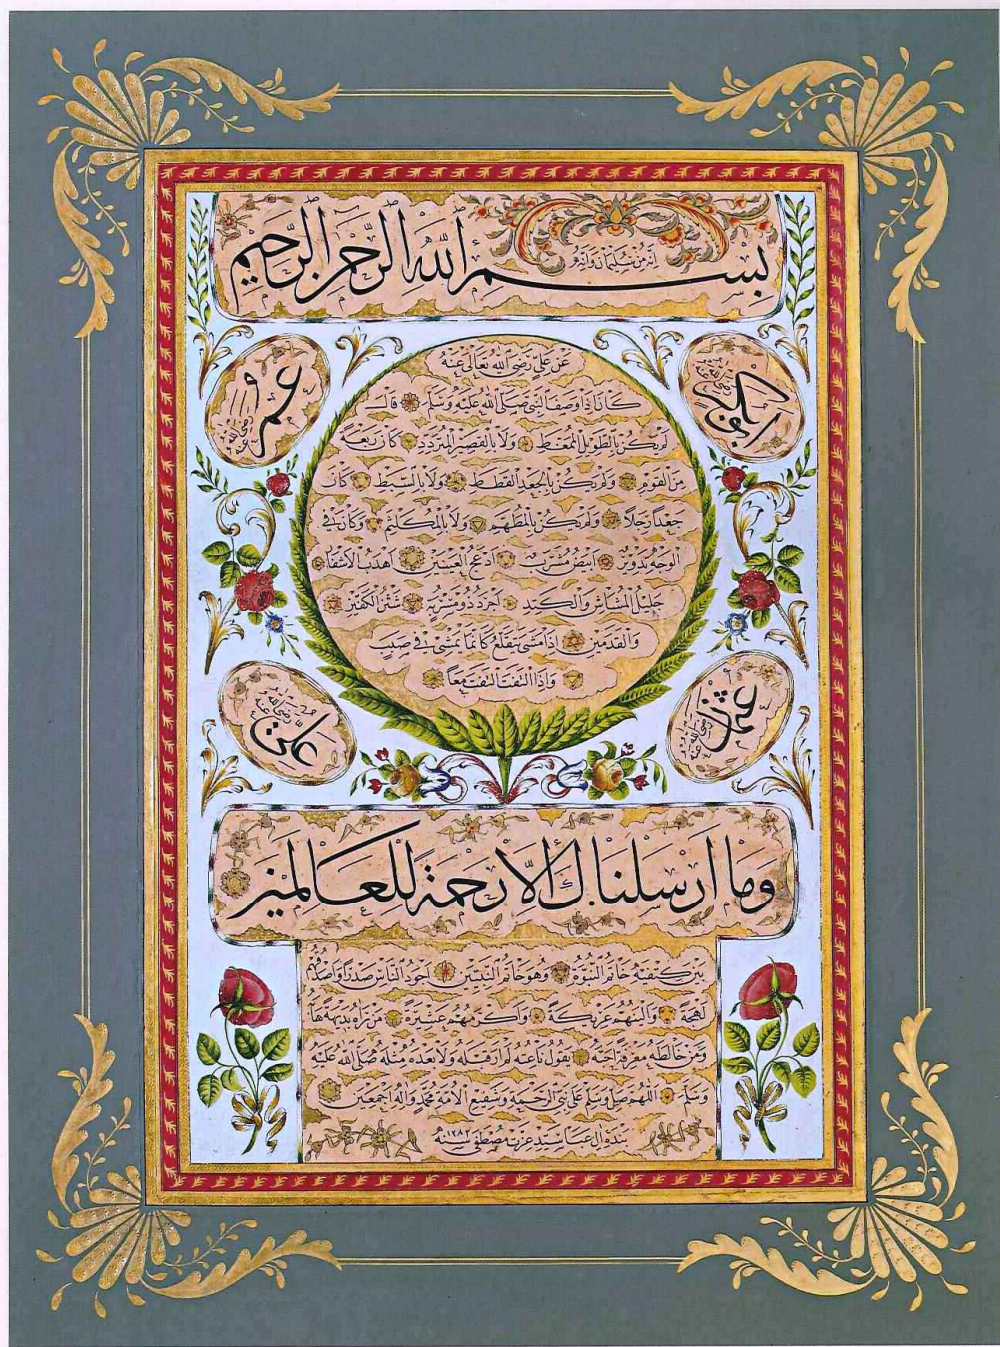 بسم الله الرحمن الرحيم
إنه من سليمان وإنه
أبو بكر رضي الله عنه
عمر رضي الله عنه
عن علي رضي الله تعالى عنه
كان إذا وصف النبي صلى الله عليه وسلم قال
لم يكن بالطويل الممغط ولا بالقصير المتردد كان ربعة
من القوم ولم يكن بالجعد القطط ولا بالسبط كان
جعدا رجلا ولم يكن بالمطهم ولا بالمكلثم وكان في
الوجه تدوير أبيض مشرب أدعج العينين أهدب الأشفار
جليل المشاش والكتد أجرد ذو مسربة شثن الكفين
والقدمين إذا مشى يتقلع كأنما يمشي في صبب
وإذا التفت التفت معا
عثمان رضي الله عنه
علي رضي الله عنه
وما أرسلناك إلا رحمة للعالمين
بين كتفيه خاتم النبوة وهو خاتم النبيين أجود الناس صدرا وأصدقهم
لهجة وألينهم عريكة وأكرمهم عشيرة من رآه بديهة هابه
ومن خالطه معرفة أحبه يقول ناعته لم أر قبله ولا بعده مثله صلى الله عليه
وسلم اللهم صل وسلم على نبي الرحمة وشفيع الأمة محمد وآله أجمعين
بنده آل عبا سيد عزت مصطفى سنه